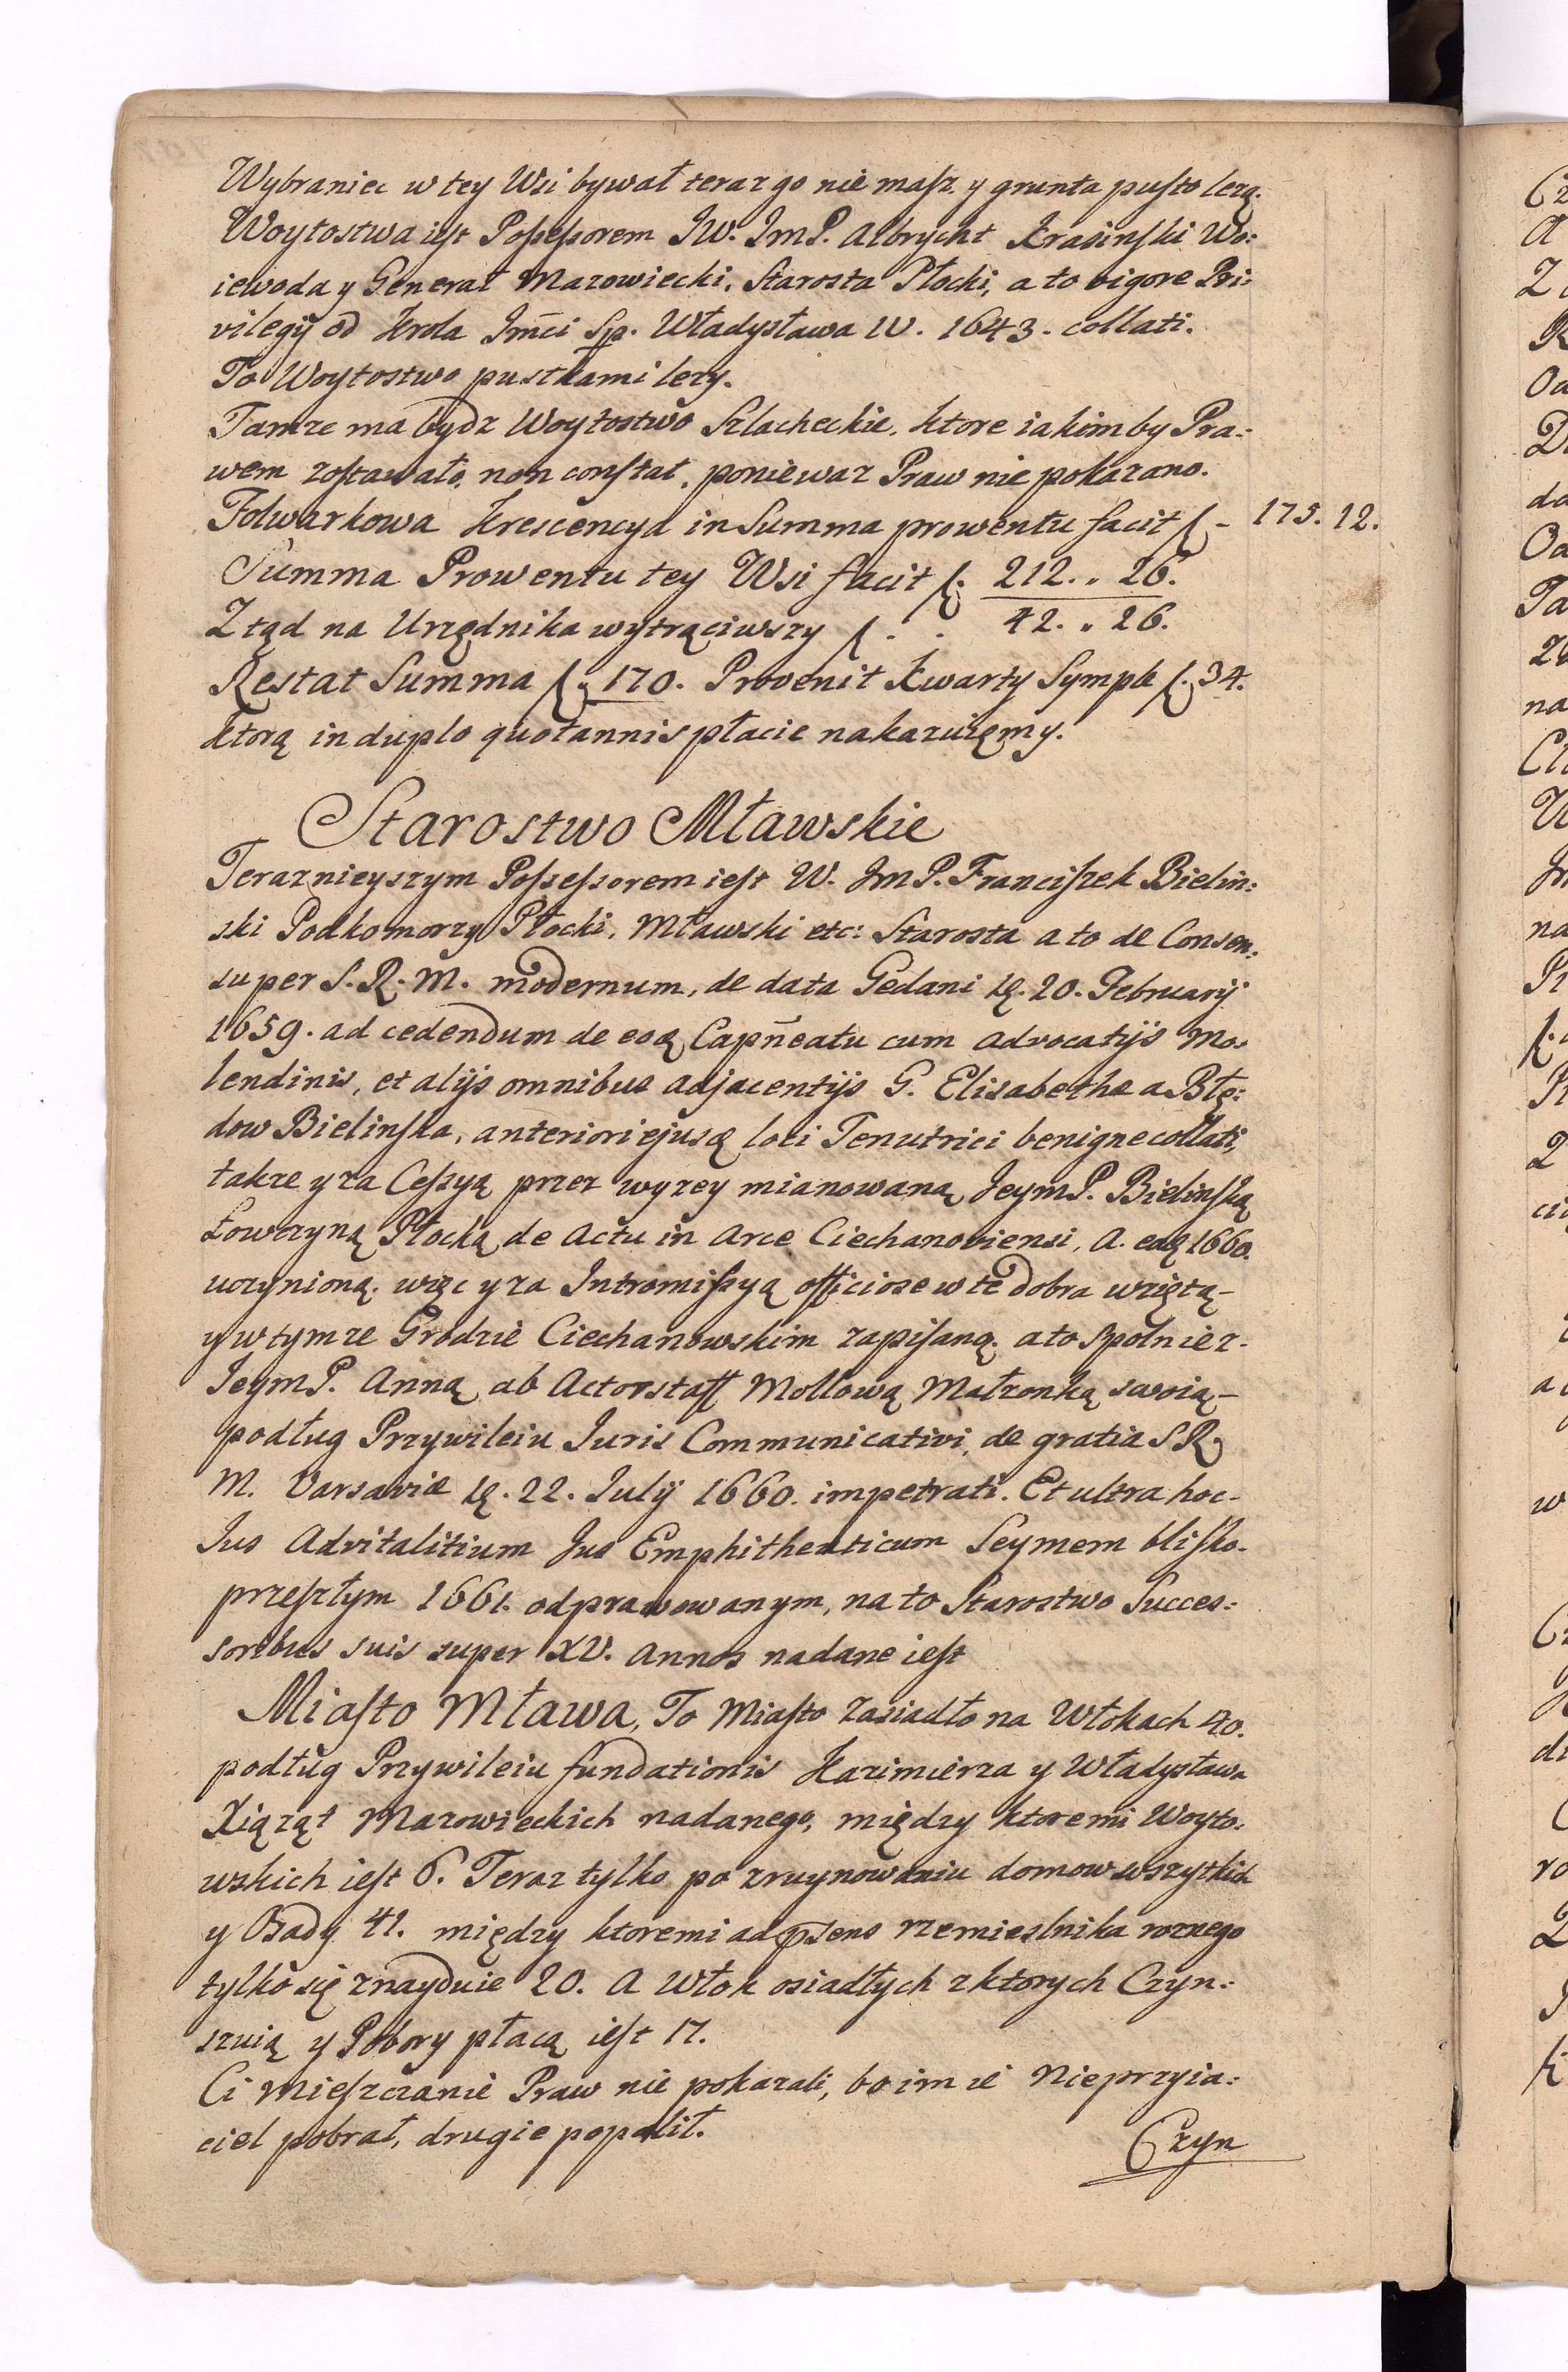 Wybraniec w tey Wsi bywał teraz go nie masz y grunta pusto lezą.
Woytostwa iest Possessorem JW. JmP. Albrycht Krasinski Wo:
iewoda y Generał Mazowiecki, Starosta Płocki, a to vigore Pri:
vilegij od Krola Jmci Sp. Władysława IV. 1643. collati.
To Woytostwo pustkami lezy.
Tamze ma bydz Woytostwo Szlacheckie, ktore iakimby Pra:
wem zostawało, non constat, poniewaz Praw nie pokazano.
Folwarkowa Krescencya in Summa prowentu facit f. - 175. 12.
Summa Prowentu tey Wsi facit f. 212. " 26.
Ztąd na Urzędnika wytrąciwszy f. . . 42. " 26.
Restat Summa f. 170. Provenit Kwarty Symple f. 34.
ktorą in duplo quotannis płacic nakazuięmy.
Starostwo Mławskie
Teraznieyszym Possessorem iest W. JmP. Franciszek Bielin:
ski Podkomorzy Płocki, Mławski etc: Starosta a to de Consen:
su per S. R. M. modernum, de data Gedani 20. February
1659. ad cedendum de eoq Capneatu cum advocatijs Mo:
lendinis, et alijs omnibus adjacentijs G. Elisabetha a Błę:
dow Bielinska, anteriori ejusq loci Tenutrici benigne collati,
takze y za Cessyą przez wyzey mianowaną JeymP. Bielinską
Łowczyną Płocką de Actu in Arce Ciechanoviensi, A. eoq 1660.
uczynioną. więc y za Intromissyą officiose w te dobra wziętą-
y w tymze Grodzie Ciechanowskim zapisaną. a to spolnie z-
JeymP. Anną ab Actorstoff Mollową Małzonką swoią-
podług Przywileiu Juris Communicativi, de gratia S R
M. Varsaviæ 22. July 1660. impetrati. Et ultra hoc-
Jus Advitalitium Jus Emphitheuticum Seymem blisko-
przeszłym 1661. odprawowanym, na to Starostwo Succes:
soribus suis super XV. Annos nadane iest
Miasto Mława, To Miasto zasiadło na Włokach 40.
podług Przywileiu fundationis Kazimierza y Władysława
Xiąząt Mazowieckich nadanego, między ktoremi Woyto:
wskich iest 6. Teraz tylko po zruynowaniu domow wszytkich
y Osady 41. między ktoremi ad psens rzemieslnika roznego
tylko się znayduie 20. A Włok osiadłych z ktorych Czyn:
szuią y Pobory płacą iest 17.
Ci Mieszczanie Praw nie pokazali, bo im ie Nieprzyia:
ciel pobrał, drugie popalił.
Czyn